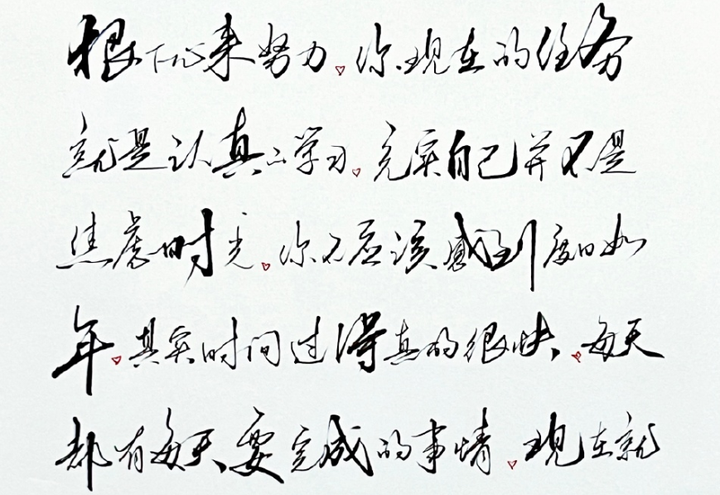 狠下心来努力。你现在的任务
就是认真心学习。充实自己并不是
焦虑时光。你不应该感到度日如
年。其实时间过得真的很快、每天
都有每天要完成的事情。现在就